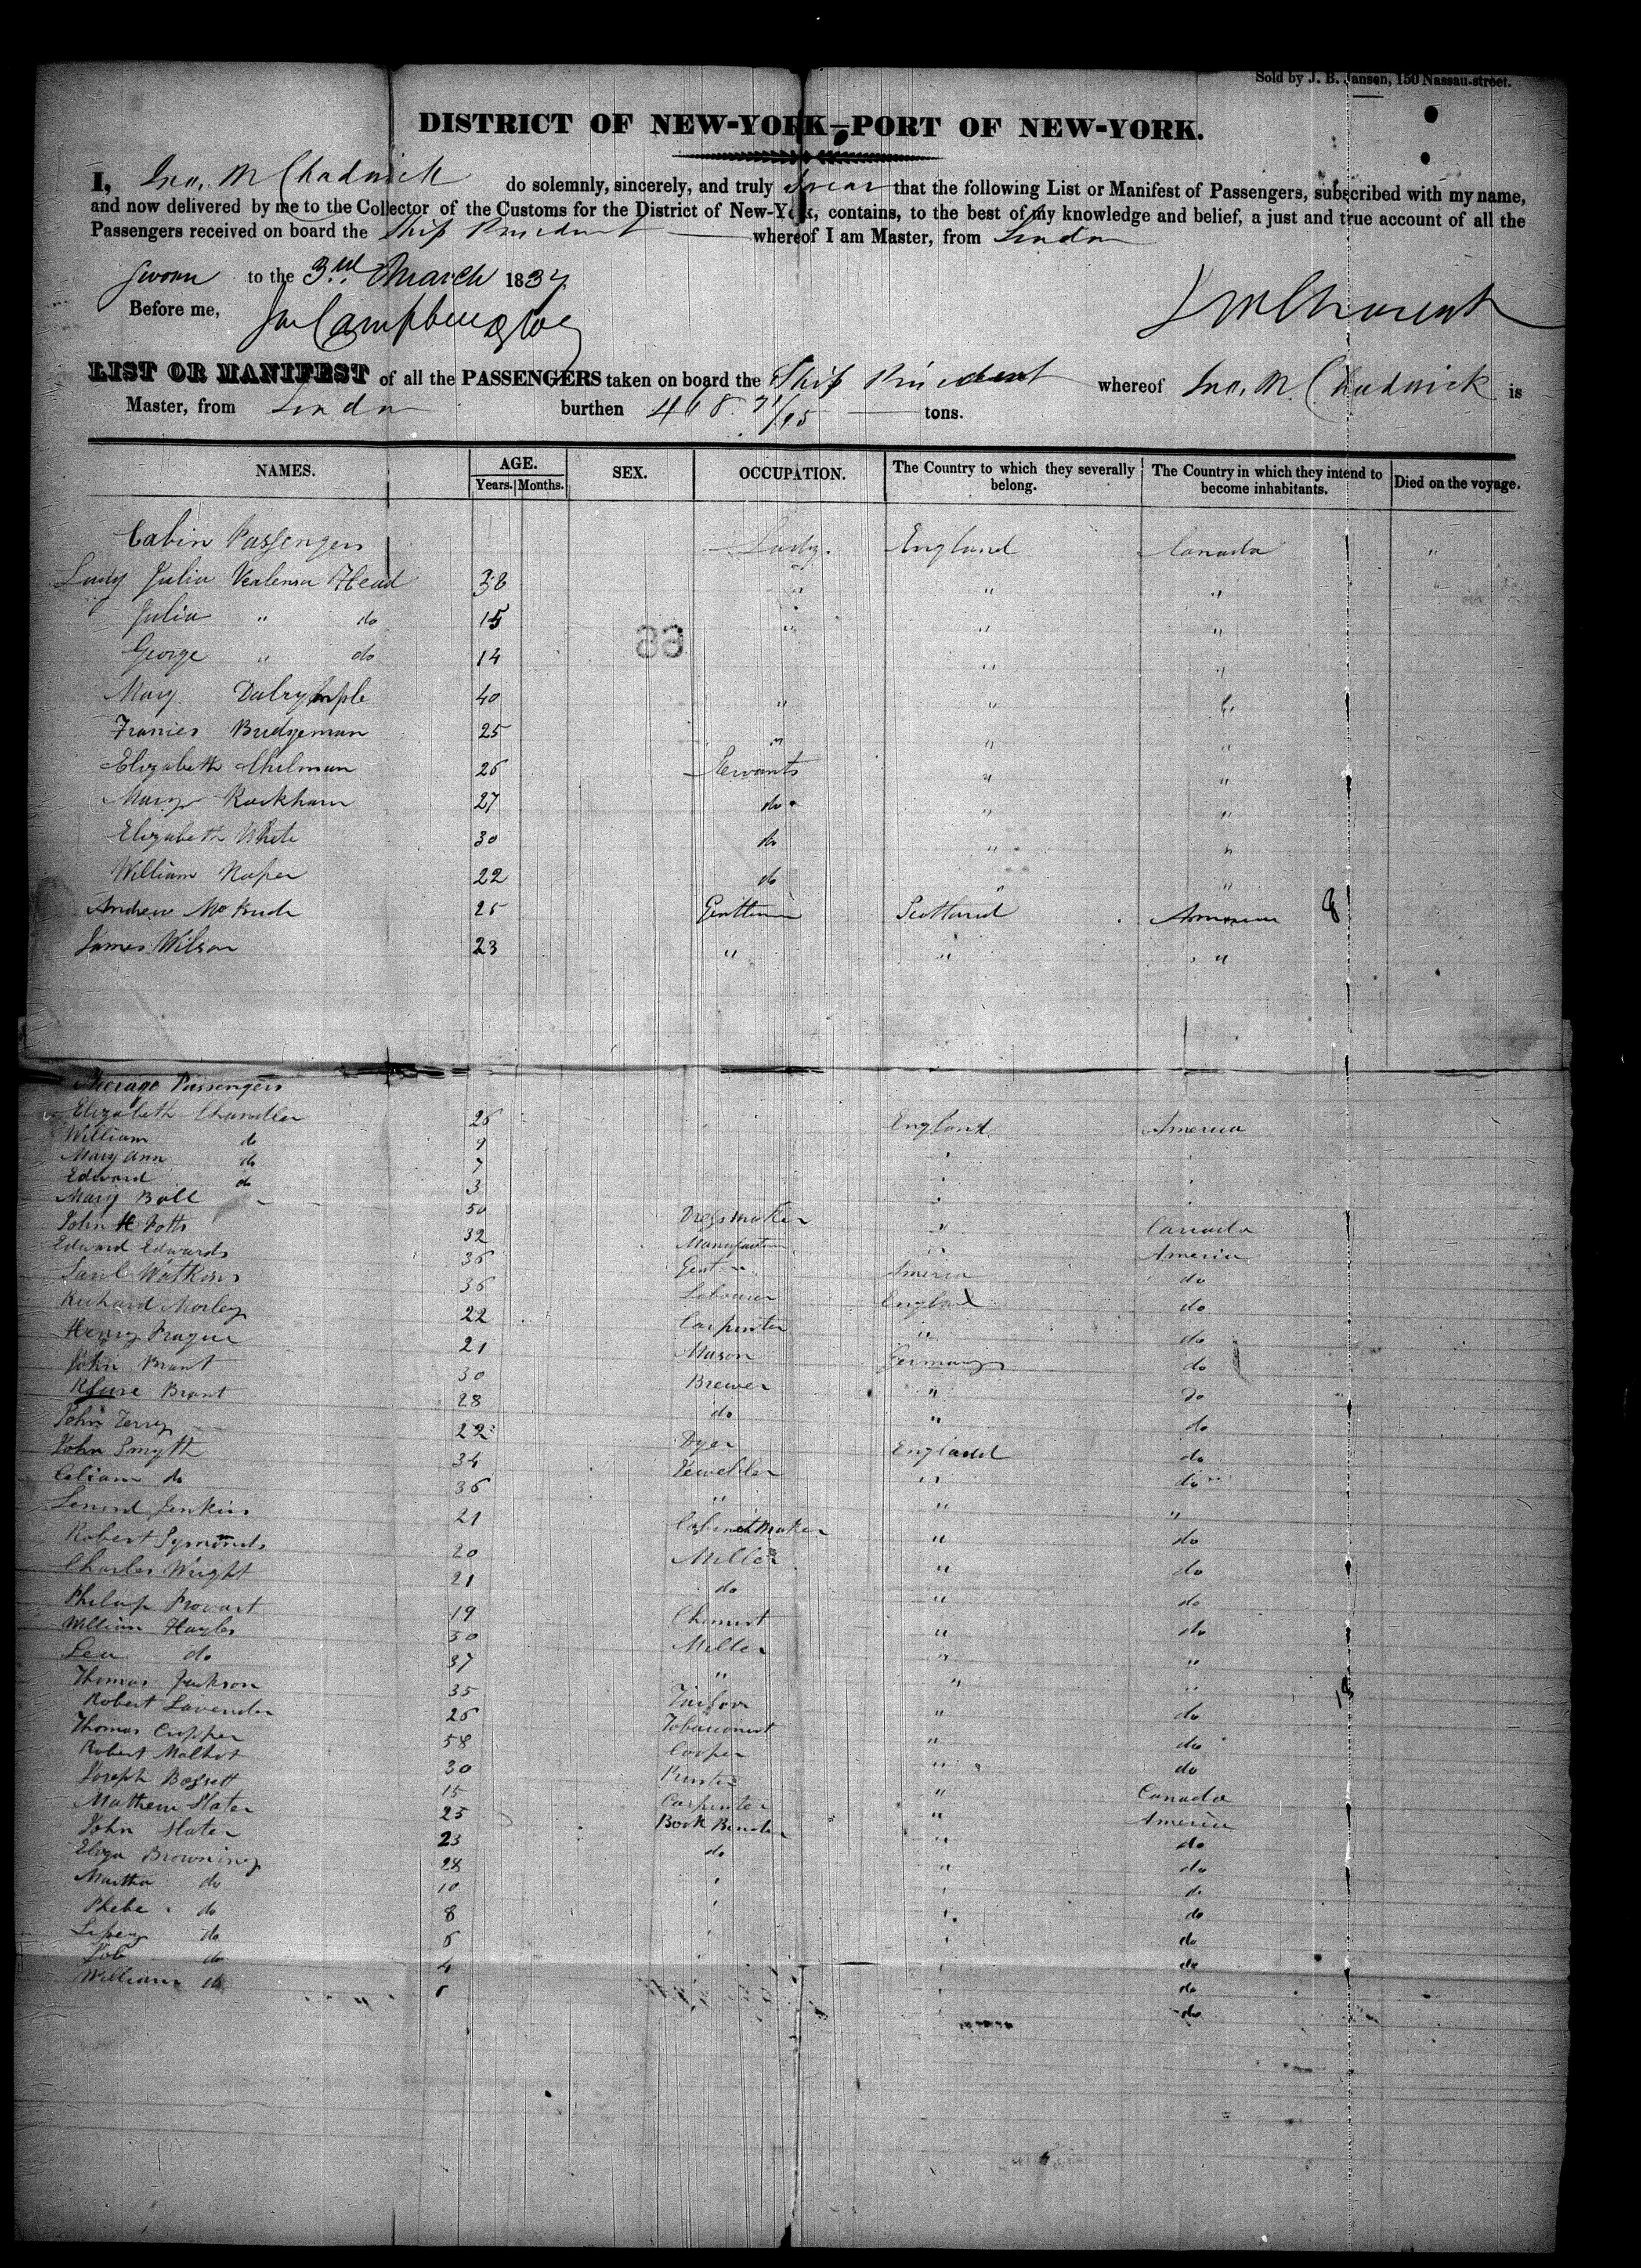 Sold by J. B. Jansen, 150 Nassau-street.
DISTRICT OF NEW-YORK—PORT OF NEW-YORK.
I, Jno. M Chadwick do solemnly, sincerely, and truly Swear that the following List or Manifest of Passengers, subscribed with my name,
and now delivered by me to the Collector of the Customs for the District of New-York, contains, to the best of my knowledge and belief, a just and true account of all the
Passengers received on board the Ship President whereof I am Master, from London
Sworn to the 3rd March 1837
Before me,
J M Chadwick
LIST OR MANIFEST of all the PASSENGERS taken on board the Ship President whereof Jno. M. Chadwick is
Master, from London burthen 468 71/95 tons.
NAMES. AGE. Years. Months. SEX. OCCUPATION. The Country to which they severally belong. The Country in which they intend to become inhabitants. Died on the voyage.
Cabin Passengers Lady. England Canada "
Lady Julia Head 38 " " "
Julia " do 15 " " "
George " do 14 " "
Mary Dalrymple 40 " " "
Francies Bridgeman 25 " " "
Elizabeth 26 Servants " "
Mary Rackham 27 do " "
Elizabeth White 30 do " "
William 22 do " "
Andrew 25 Gentleman Scotland America 8
James Wilson 23 " " "
Steerage Passengers
Elizabeth Chandler 26 England America
William do 9
Mary Ann do 7
Edward do 3
Mary Ball 50 Dressmaker " Canada
John H Potts 32 Manufacturer " America
Edward Edwards 36 Gent America do
Saml Watkins 36 Labourer England do
Richard Morley 22 Carpenter " do
Henry 21 Mason Germany do
John Brant 30 Brewer " do
Brant 28 do " do
John Terry 22 Dyer England do
John Smyth 34 Jeweller " do
do 36 " " "
Jenkins 21 Cabinet Maker " do
Robert Symonds 20 Miller " do
Charles Wright 21 do " do
Philip 19 Chemist " do
William Hayles 50 Miller " "
do 37 " " "
Thomas Jackson 35 Tailor " do
Robert Lavender 26 Tobacconist " do
Thomas Cropper 58 Cooper " do
Robert 30 Printer " Canada
Joseph Bassett 15 Carpenter " America
Mathew Slater 25 Book Binder " do
John Slater 23 do " do
Eliza Browning 28 do
Martha do 10 do
Phebe do 8 do
do 6 do
Job do 4 do
William do 6 do